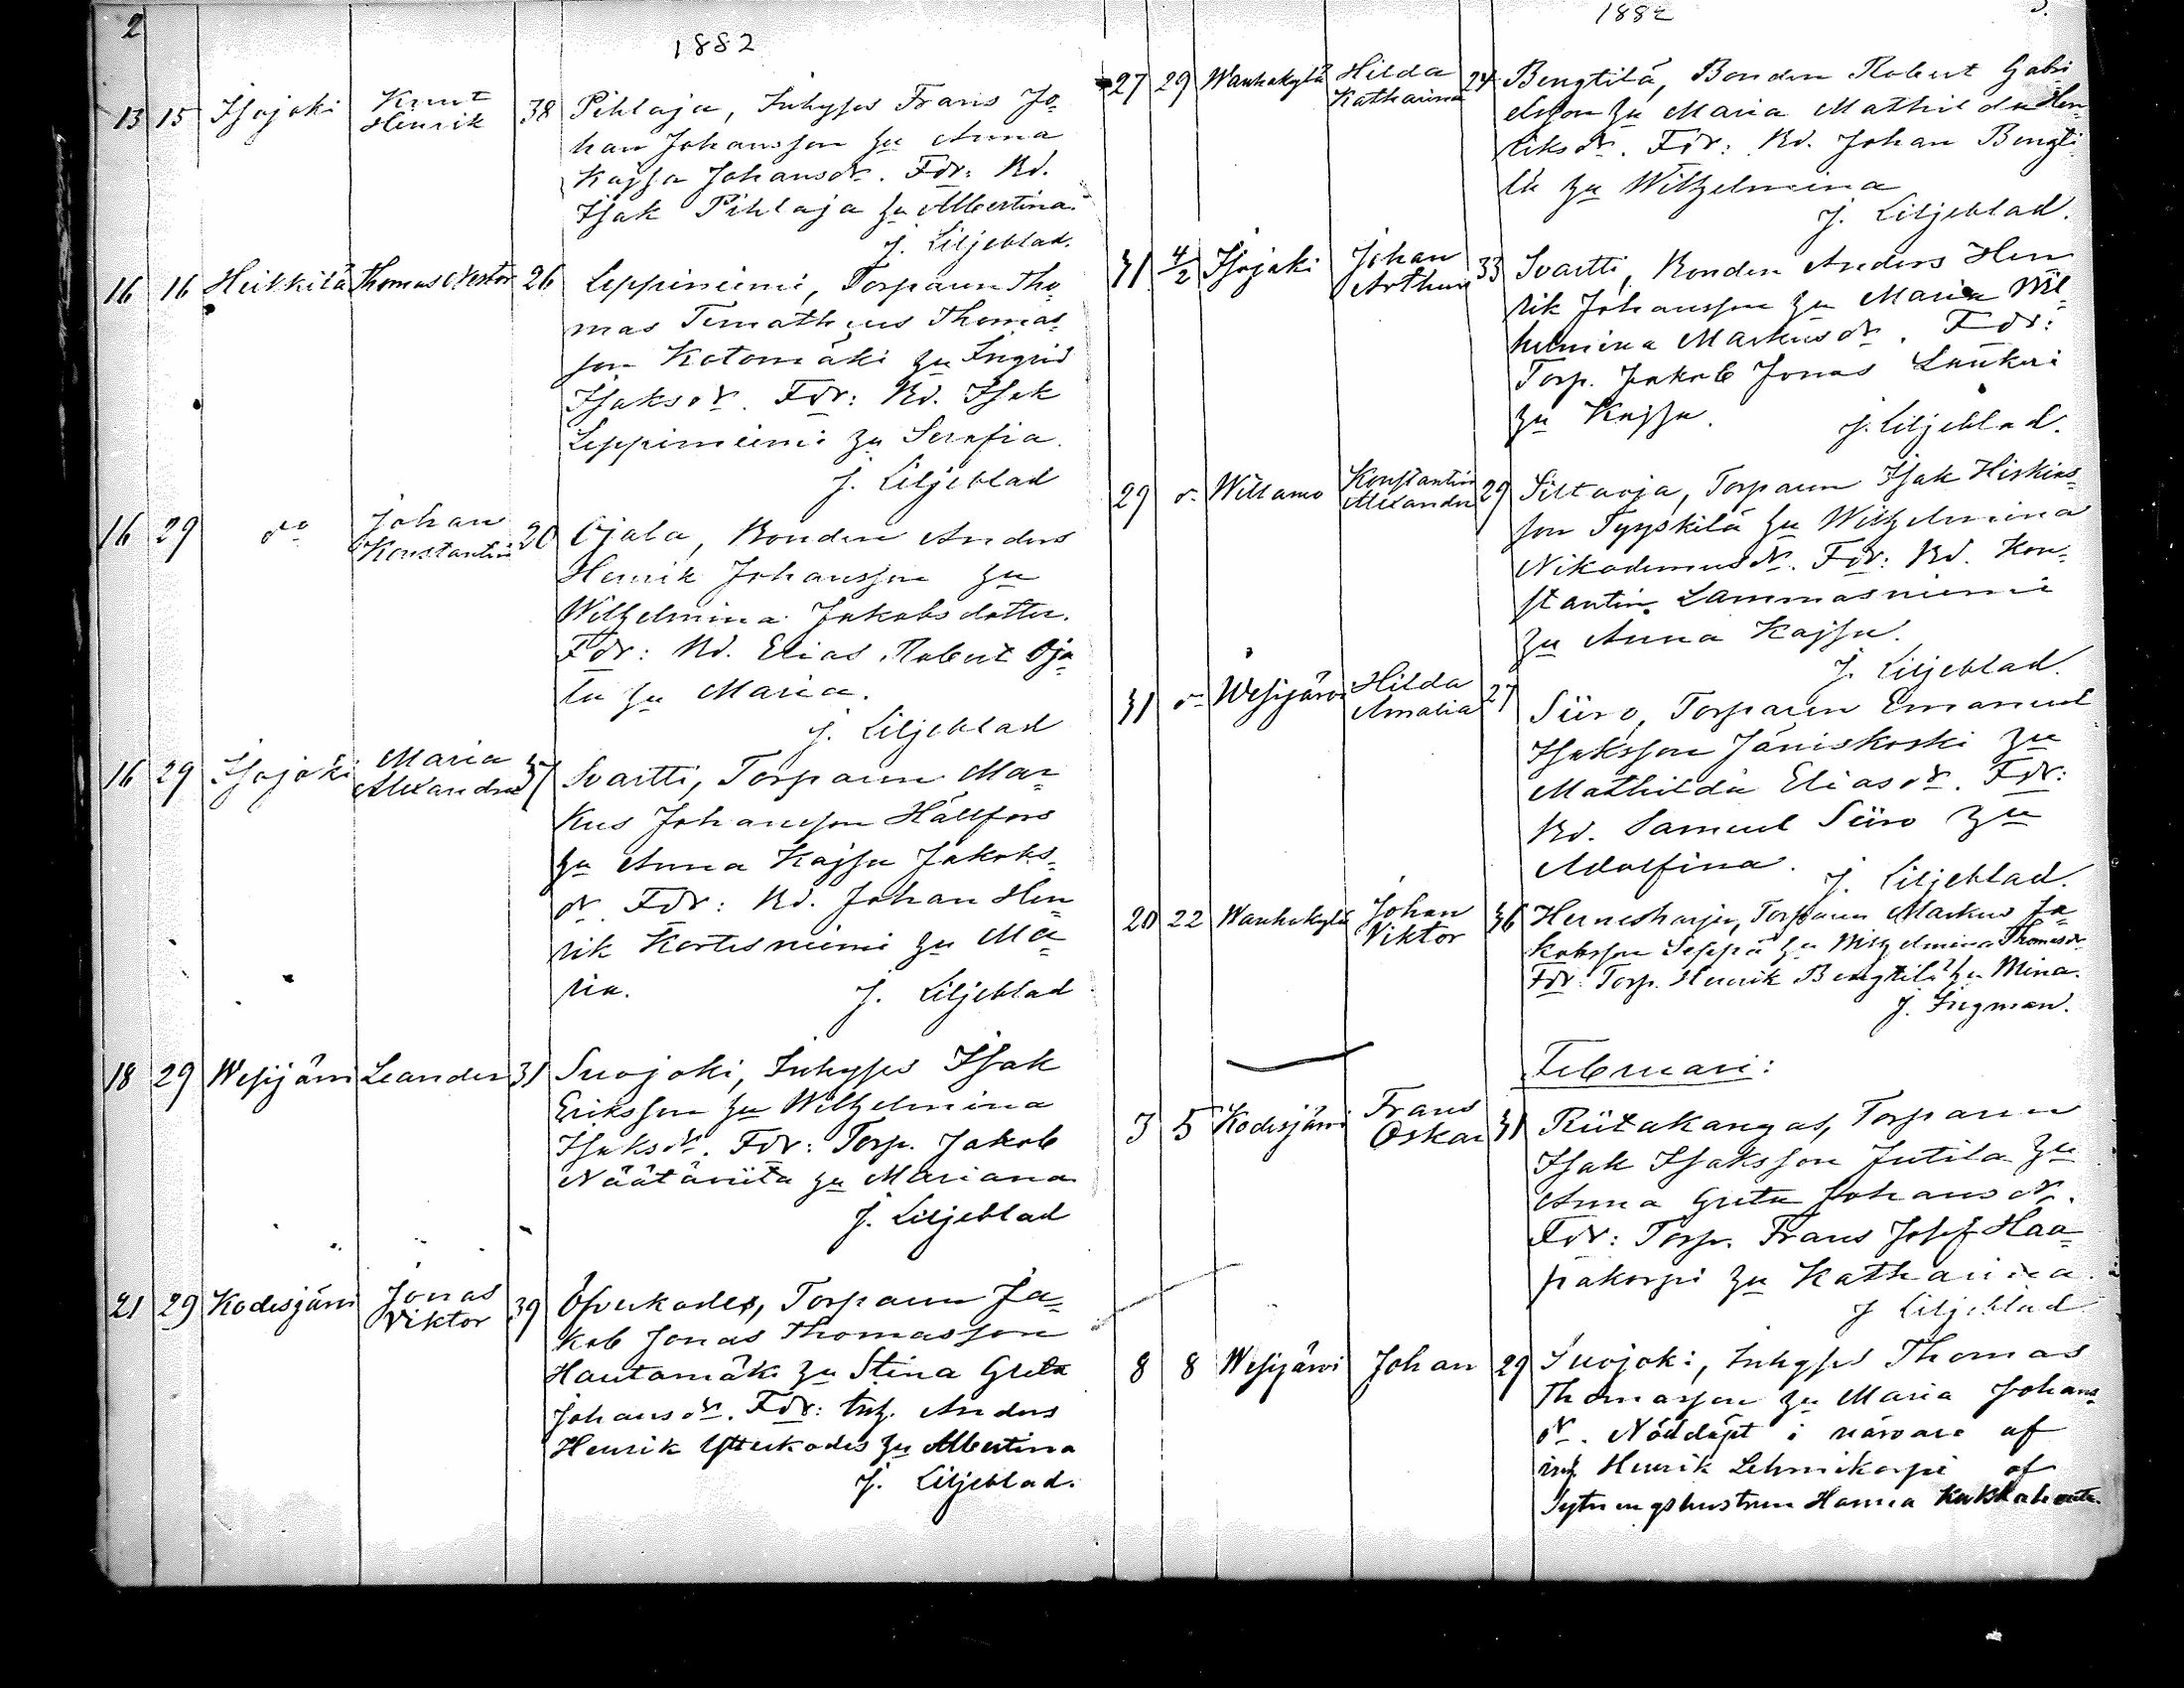 2
1882
13 15 Isojoki Knut Henrik 38 Pihlaja, Inhyses Frans Jo-
han Johansson hu Anna
Kajsa Johansdr. Fdr: Bd.
Isak Pihlaja hu Albertina.
J. Liljeblad.
16 16 Heikkilä Thomas Nestor 26 Leppiniemi, Torparen Tho-
mas Timotheus Thomas-
son Kotomäki hu Ingrid
Isaksdr. Fdr: Bd. Isak
Leppiniemi hu Serafia.
J. Liljeblad
16 29 do Johan Konstantin 20 Ojala, Bonden Anders
Henrik Johansson hu
Wilhelmina Jakobsdotter.
Fdr: Bd. Elias Robert Oja-
la hu Maria.
J. Liljeblad
16 29 Isojoki Maria Alexandra 37 Svartti, Torparen Mar-
kus Johansson Hällfors
hu Anna Kajsa Jakobs-
dr. Fdr: Bd. Johan Hen-
rik Kortesniemi hu Ma-
ria. J. Liljeblad
18 29 Wesijärvi Leander 31 Suojoki, Inhyses Isak
Eriksson hu Wilhelmina
Isaksdr. Fdr: Torp. Jakob
Näätäriita hu Mariana
J. Liljeblad
21 29 Kodesjärvi Jonas Viktor 39 Öfverkodes, Torparen Ja-
kob Jonas Thomasson
Hautamäki hu Stina Greta
Johansdr. Fdr: Inh. Anders
Henrik Ytterkodes hu Albertina
J. Liljeblad.
1882
3.
27 29 Wanhakylä Hilda Katharina 24 Bengtilä, Bonden Robert Gabri-
elsson hu Maria Mathilda Hen-
riksdr. Fdr: Bd. Johan Bengti-
lä hu Wilhelmina
J. Liljeblad.
31 4/2 Isojoki Johan Arthur 33 Svartti, Bonden Anders Hen
rik Johansson hu Maria Wil-
helmina Markusdr. Fdr:
Torp. Jakob Jonas Laukari
hu Kajsa. J. Liljeblad.
29 d. Willamo Konstantin Alexander 29 Siltaoja, Torparen Isak Hiskias-
son Tyyskilä hu Wilhelmina
Nikodemusdr. Fdr: Bd. Kon-
stantin Lammasniemi
hu Anna Kajsa.
J. Liljeblad.
31 d. Wesijärvi Hilda Amalia 27 Siiro, Torparen Emanuel
Isaksson Jäniskoski hu
Mathilda Eliasdr. Fdr:
Bd. Samuel Siiro hu
Adolfina. J. Liljeblad.
20 22 Wanhakylä Johan Viktor 36 Herneskarju, Torparen Markus Ja-
kobsson Seppä hu Wilhelmina Thomasdr
Fdr: Torp. Henrik Bengtilä hu Mina.
J. Ingman.
Februari:
3 5 Kodesjärvi Frans Oskar 31 Riitakangas, Torparen
Isak Isaksson Jutila hu
Anna Greta Johansdr.
Fdr: Torp. Frans Josef Haa-
pakorpi hu Katharina.
J Liljeblad
8 8 Wesijärvi Johan 29 Suojoki, Inhyses Thomas
Thomasson hu Maria Johans-
dr. Nöddöpt i närvaro af
inh Henrik Lehmikorpi af
Hanna